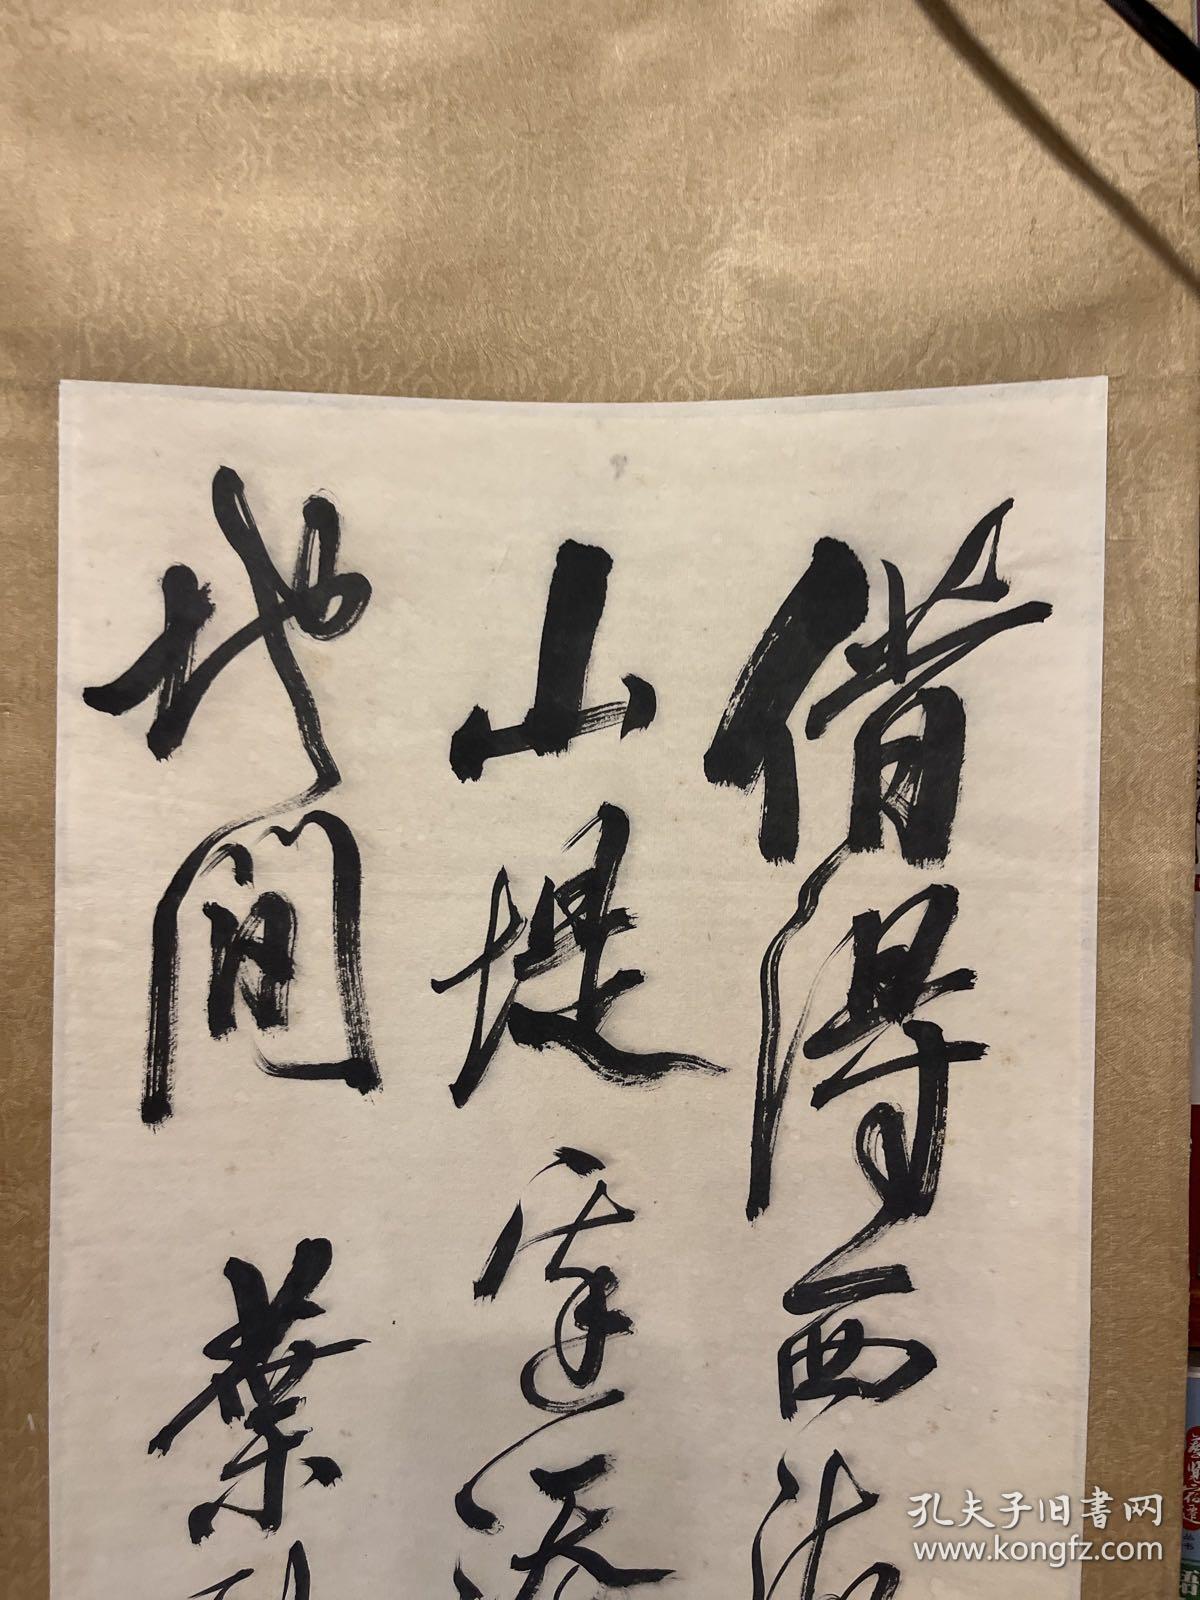 借得西湖
山堤邊添
地间 葉
孔夫子旧书网
www.kongfz.com